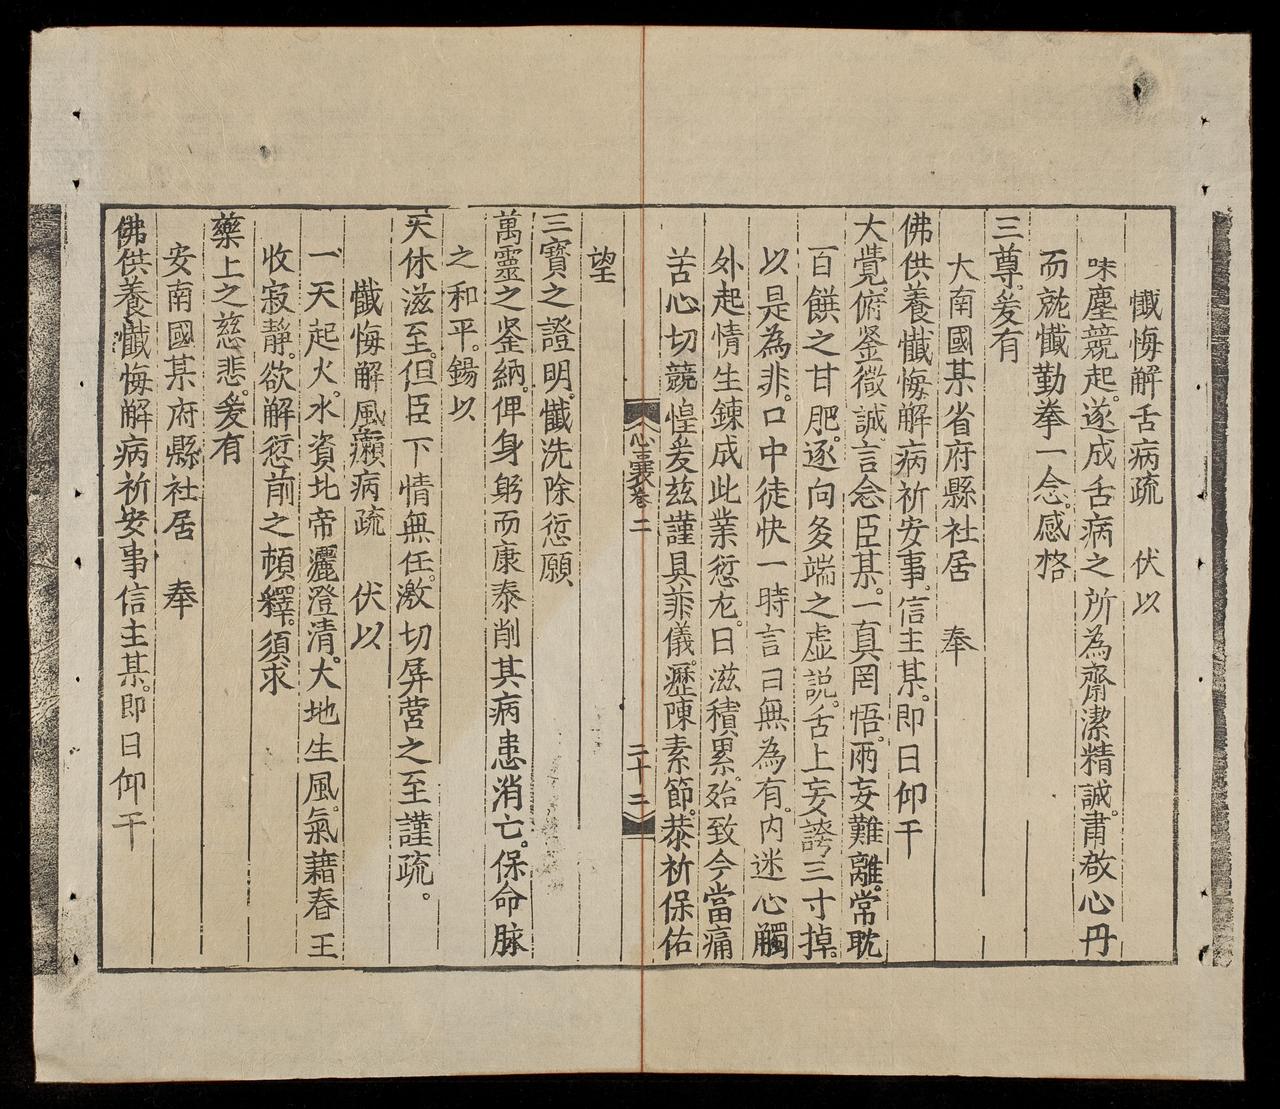 懺悔解舌病疏　伏以
味塵競起。遂成舌病之所為齋潔精誠。肅啟心丹
而就懺勤拳一念。感格
三尊。爰有
大南國某省府縣社居　奉
佛供養懺悔解病祈安事。信主某。即日仰干
大覺。俯鉴微誠。言念臣某。一真罔悟。兩妄難離。常耽
百饌之甘肥。逐向多端之虛説。舌上妄誇三寸掉。
以是為非。口中徒快一時言曰無為有。内迷心觸
外起情生鍊成此業愆尤。日滋積累。殆致今當痛
苦心切競惶爰茲謹具菲儀。歷陳素節。恭祈保佑
心囊卷二
二十二
望
三寳之證明。懺洗除愆願
萬靈之鉴納。俾身躬而康泰削其病患消亡。保命脉
之和平。錫以
天休滋至。但臣下情無任。激切屏营之至謹疏。
懺悔解風癩病疏　伏以
一天起火。水資北帝灑澄清。大地生風。氣藉春王
收寂静。欲解愆前之頓釋。須求
藥上之慈悲。爰有
安南國某府縣社居　奉
佛供養懺悔解病祈安事信主某。即日仰干